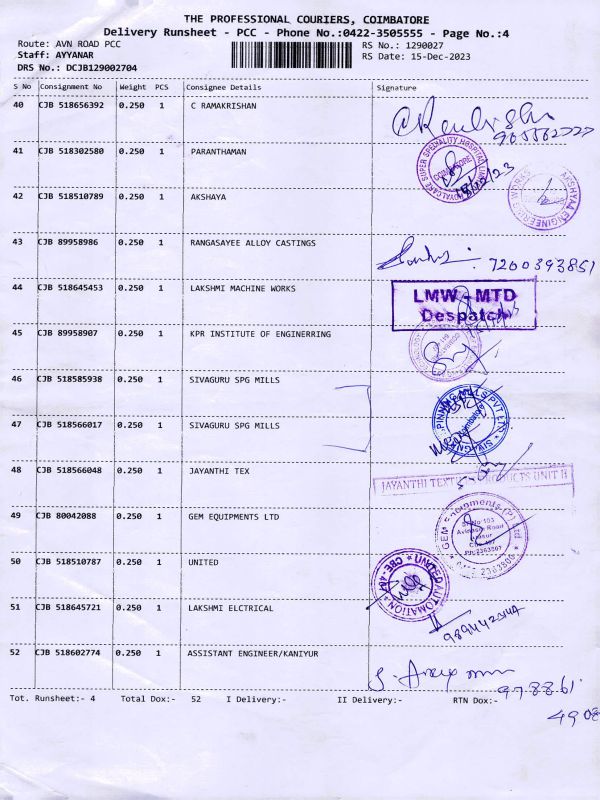 THE PROFESSIONAL COURIERS, COIMBATORE
Delivery Runsheet - PCC - Phone No.:0422-3505555 - Page No.:4
Route: AVN ROAD PCC RS No.: 1290027
Staff: AYYANAR RS Date: 15-Dec-2023
DRS No.: DCJB129002704
S No Consignment No Weight PCS Consignee Details Signature
40 CJB 518656392 0.250 1 C RAMAKRISHAN
41 CJB 518302580 0.250 1 PARANTHAMAN
ROYALCARE SUPER SPECIALITY HOSPITAL COIMBATORE
42 CJB 518510789 0.250 1 AKSHAYA
AKSHYAA ENGINEERING WORKS
43 CJB 89958986 0.250 1 RANGASAYEE ALLOY CASTINGS
7200393851
44 CJB 518645453 0.250 1 LAKSHMI MACHINE WORKS
LMW - MTD
Despatch
45 CJB 89958907 0.250 1 KPR INSTITUTE OF ENGINERRING
46 CJB 518585938 0.250 1 SIVAGURU SPG MILLS
47 CJB 518566017 0.250 1 SIVAGURU SPG MILLS
48 CJB 518566048 0.250 1 JAYANTHI TEX
JAYANTHI TEXTILE PRODUCTS UNIT II
49 CJB 80042088 0.250 1 GEM EQUIPMENTS LTD
GEM Equipments (P) Ltd
50 CJB 518510787 0.250 1 UNITED
UNITED AUTOMATION
51 CJB 518645721 0.250 1 LAKSHMI ELCTRICAL
52 CJB 518602774 0.250 1 ASSISTANT ENGINEER/KANIYUR
97886!
4908
Tot. Runsheet:- 4 Total Dox:- 52 I Delivery:- II Delivery:- RTN Dox:-